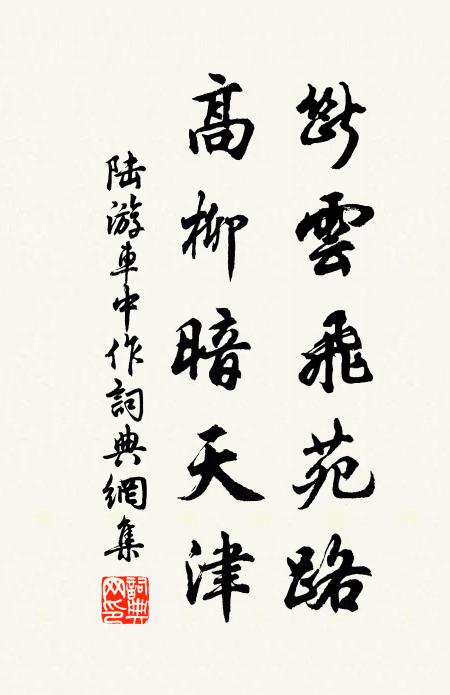 斷雲飛苑路
高柳暗天津
陸游車中作詞典網集
詞典網印